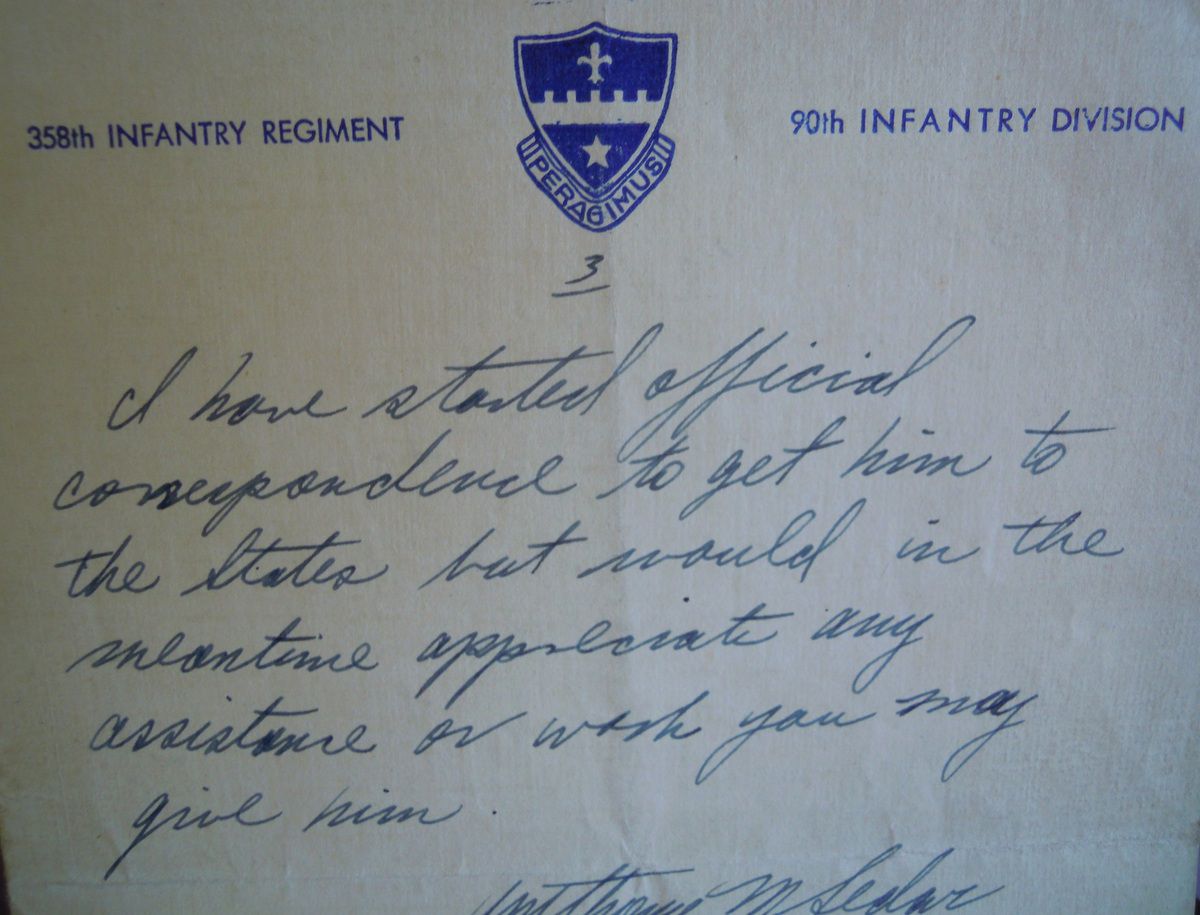 358th INFANTRY REGIMENT
90th INFANTRY DIVISION
PERAGIMUS
3
I have started official
correspondence to get him to
the States but would in the
meantime appreciate any
assistance or work you may
give him.
M Sedar